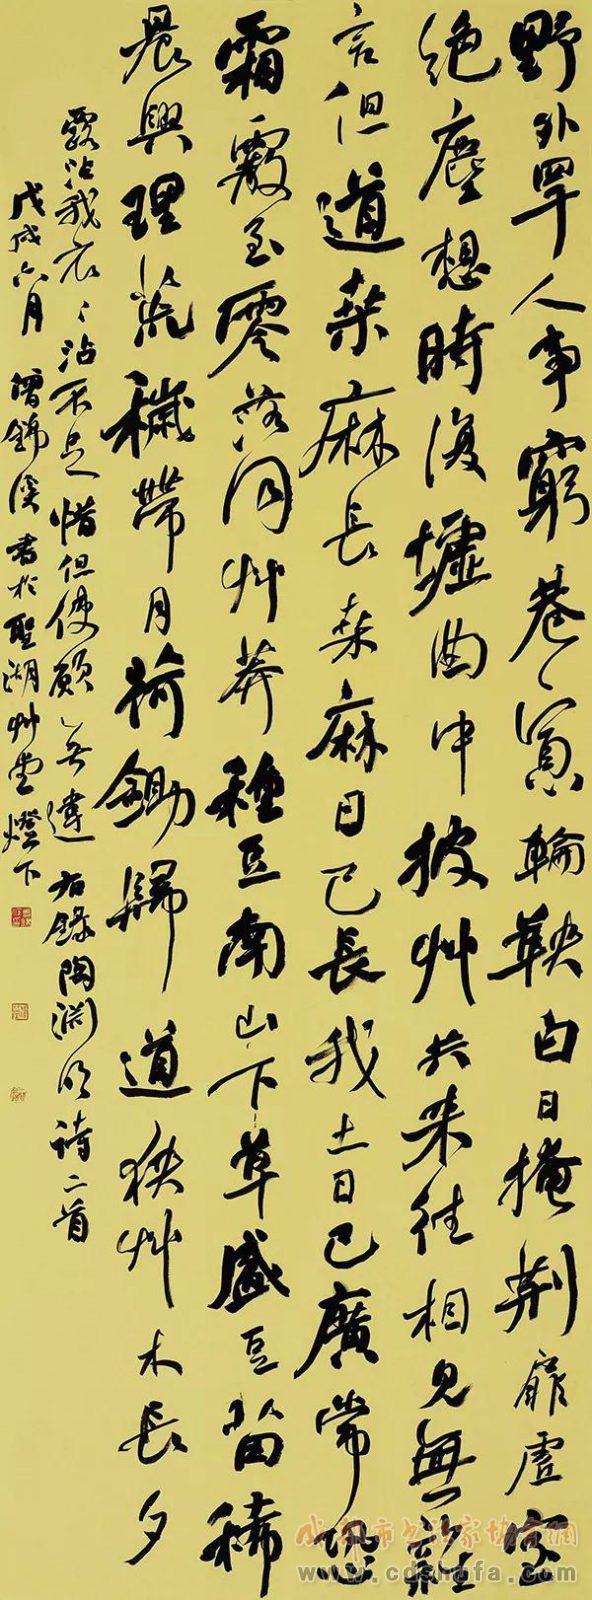 野外罕人事窮巷〻寡輪鞅白日掩荊扉虛室
絕塵想時復墟曲中披艸共來往相見無雜
言但道桑麻長桑麻日已長我土日已廣常恐
霜霰至零落同艸莽種豆南山下草盛豆苗稀
晨興理荒穢帶月荷鋤歸道狹艸木長夕
露沾我衣〻沾不足惜但使願無違 右錄陶淵明詩二首
戊戌六月 曾錦溪書於聖湖艸堂燈下
成都市书法家协会网
www.cdshufa.com